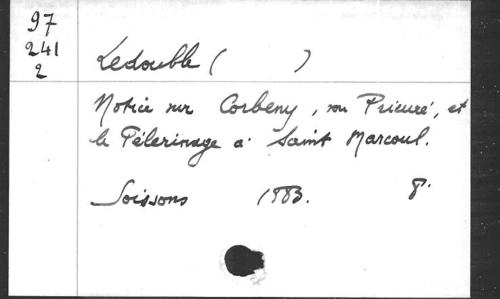 97
241
2
Ledouble ( )
Notice sur Corbeny, son Prieuré, et
le Pélerinage à Saint Marcoul.
Soissons 1883. 8°